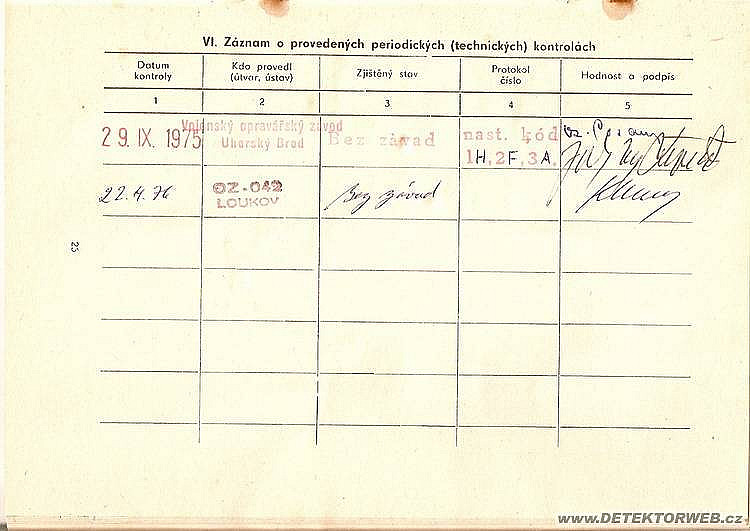 VI. Záznam o provedených periodických (technických) kontrolách
Datum kontroly
Kdo provedl (útvar, ústav)
Zjištěný stav
Protokol číslo
Hodnost a podpis
1 2 3 4 5
29. IX. 1975
Vojenský opravářský závod
Uherský Brod
Bez závad
nast. kód
1H, 2F, 3A.
22.4.76
OZ-042
LOUKOV
Bez závad
25
www.DETEKTORWEB.cz